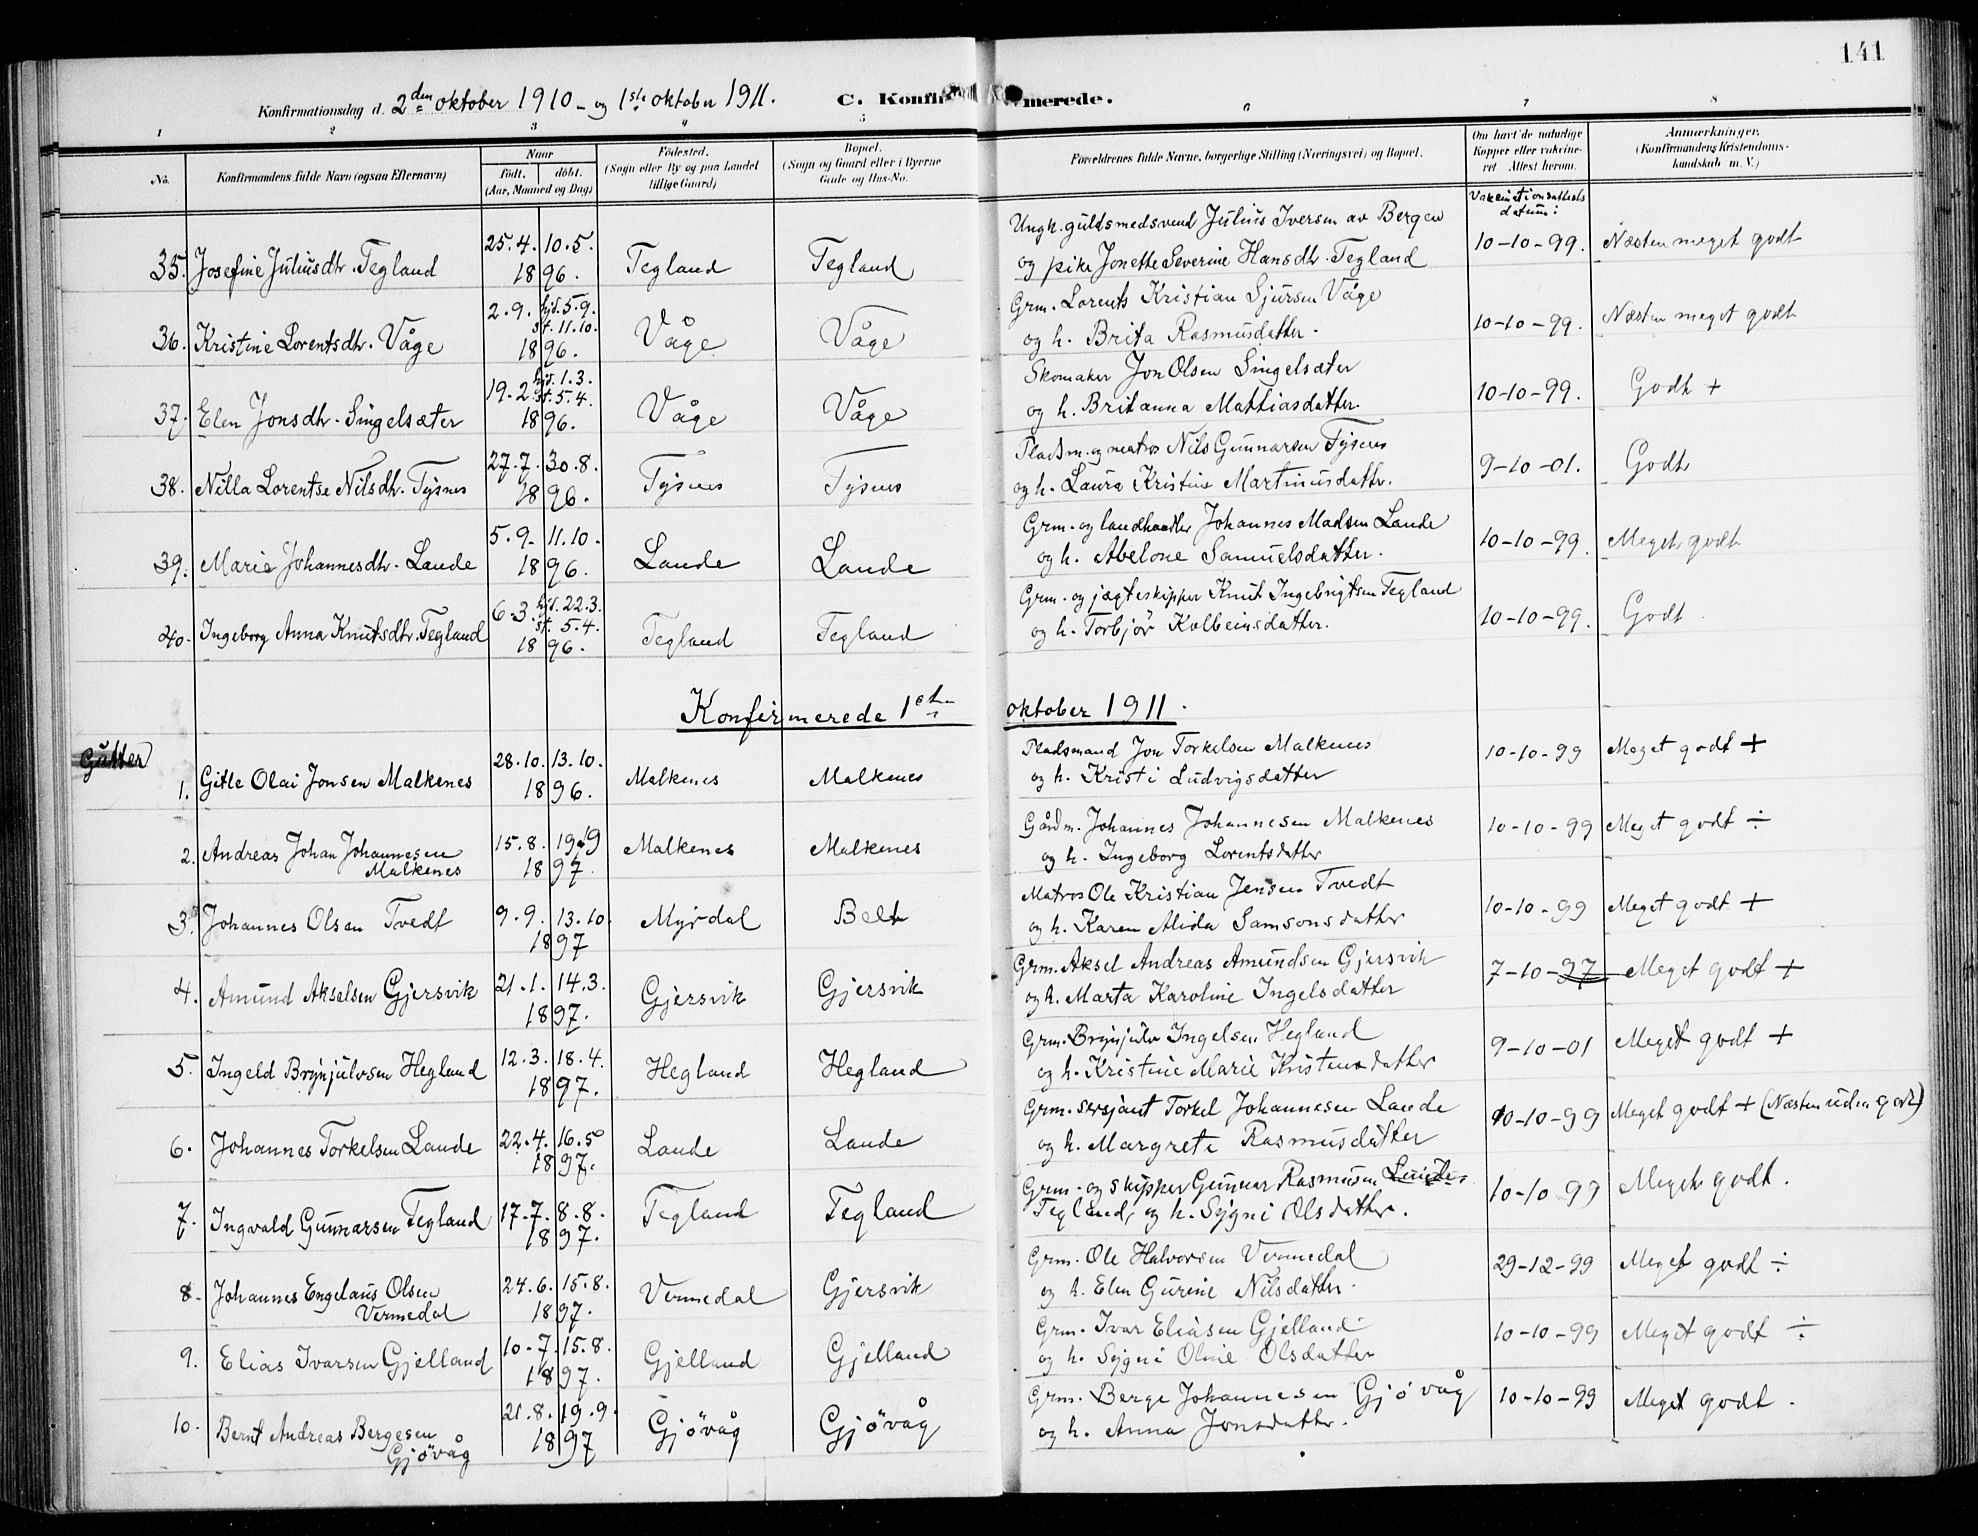 141
Konfirmationsdag d. 2den oktober 1910 - og 1ste oktober 1911. C. Konfirmerede.
1 2 3 4 5 6 7 8
No. Konfirmandens fulde Navn (ogsaa Efternavn) Naar født. døbt. (Aar, Maaned og Dag) Fødested. (Sogn eller By og paa Landet tillige Gaard) Bopæl. (Sogn og Gaard eller i Byerne Gade og Hus-No. Forældrenes fulde Navne, borgerlige Stilling (Næringsvei) og Bopæl. Om havt de naturlige Kopper eller vaccineret Attest herom. Anmærkninger. (Konfirmandens Kristendomskundskab m. V.)
Vakcinationsattests datum:
Ungk. guldsmedsvend Julius Iversen av Bergen
35. Josefine Juliusdtr. Tegland 25.4. 10.5. 1896. Tegland Tegland og pike Jonette Severine Hansdtr. Tegland 10-10-99. Næsten meget godt
Grm. Lorents Kristian Sjursen Våge
36. Kristine Lorentsdtr. Våge 2.9. hjd. 5.9. st. 11.10. 1896. Våge Våge og h. Brita Rasmusdatter. 10-10-99. Næsten meget godt
Skomaker Jon Olsen Singelsæter
37. Elen Jonsdtr. Singelsæter 19.2. hjd. 1.3. st. 5.4. 1896. Våge Våge og h. Britanna Mattiasdatter. 10-10-99. Godt +
Pladsm. og matros Nils Gunnarsen Tysnes
38. Nilla Lorentse Nilsdtr. Tysnes 27.7. 30.8. 1896. Tysnes Tysnes og h. Laura Kristine Martinusdatter. 9-10-01. Godt
Grm. og landhandler Johannes Madsen Lande
39. Marie Johannesdtr. Lande 5.9. 11.10. 1896. Lande Lande og h. Abelone Samuelsdatter. 10-10-99. Meget godt
Grm. og jægteskipper Knut Ingebrigtsen Tegland
40. Ingeborg Anna Knutsdtr. Tegland 6.3. hjd. 22.3. st. 5.4. 1896. Tegland Tegland og h. Torbjör Kolbeinsdatter. 10-10-99. Godt
Konfirmerede 1ste oktober 1911.
Gutter
Pladsmand Jon Torkelsen Malkenes
1. Gitle Olai Jonsen Malkenes 28.10. 13.10. 1896. Malkenes Malkenes og h. Kristi Ludvigsdatter 10-10-99 Meget godt +
Gårdm. Johannes Johannesen Malkenes
2. Andreas Johan Johannesen Malkenes 15.8. 19.9 1897. Malkenes Malkenes og h. Ingeborg Lorentsdatter 10-10-99 Meget godt ÷
Matros Ole Kristian Jensen Tvedt
3. Johannes Olsen Tvedt 9.9. 13.10. 1897 Myrdal Belt og h. Karen Alida Samsonsdatter 10-10-99 Meget godt +
Grm. Aksel Andreas Amundsen Gjersvik
4. Amund Akselsen Gjersvik 21.1. 14.3. 1897. Gjersvik Gjersvik og h. Marta Karoline Ingelsdatter 7-10-97 Meget godt +
Grm. Brynjulv Ingelsen Hegland
5. Ingeld Brynjulvsen Hegland 12.3. 18.4. 1897. Hegland Hegland og h. Kristine Marie Kristensdatter 9-10-01 Meget godt +
Grm. sersjant Torkel Johannesen Lande
6. Johannes Torkelsen Lande 22.4. 16.5 1897. Lande Lande og h. Margrete Rasmusdatter 10-10-99 Meget godt + (Næsten uden godt)
Grm. og skipper Gunnar Rasmusen
7. Ingvald Gunnarsen Tegland 17.7. 8.8. 1897. Tegland Tegland Tegland, og h. Sygni Olsdatter. 10-10-99 Meget godt.
Grm. Ole Halvorsen Vermedal
8. Johannes Engelaus Olsen Vermedal 24.6. 15.8. 1897. Vermedal Gjersvik og h. Elen Gurine Nilsdatter. 29-12-99 Meget godt ÷
Grm. Ivar Eliasen Gjelland
9. Elias Ivarsen Gjelland 10.7. 15.8. 1897. Gjelland Gjelland og h. Sygni Oline Olsdatter 10-10-99 Meget godt ÷
Grm. Berge Johannesen Gjövåg
10. Bernt Andreas Bergesen Gjövåg 21.8. 19.9. 1897 Gjövåg Gjövåg og h. Anna Jonsdatter. 10-10-99 Meget godt.